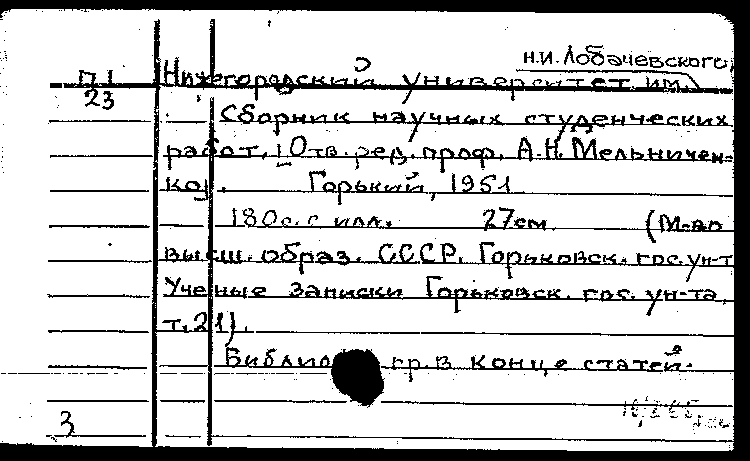 н.и. Лобачевского
П1 Нижегородский университет им.
23
Сборник научных студенческих
работ. [Отв. ред. проф. А.Н. Мельничен-
ко]. Горький, 1951
180с. с илл. 27см. (М-во
высш. образ. СССР. Горьковск. гос. ун-т
Ученые записки Горьковск. гос. ун-та,
т. 21).
гр. в конце статей.
3